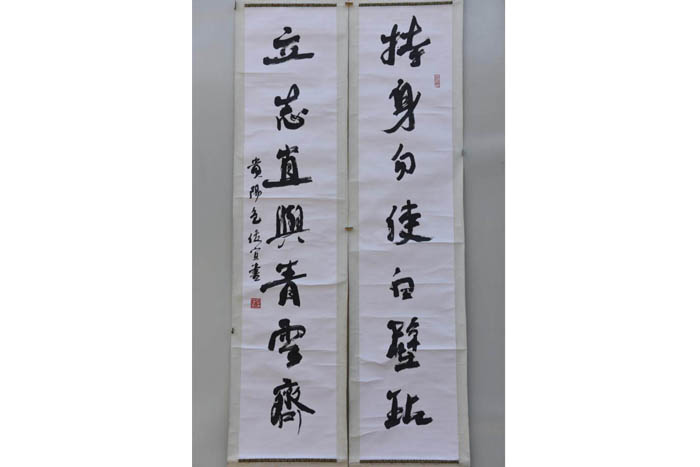 持身勿使白璧玷
立志直與青雲齊
貴陽包俊宜書